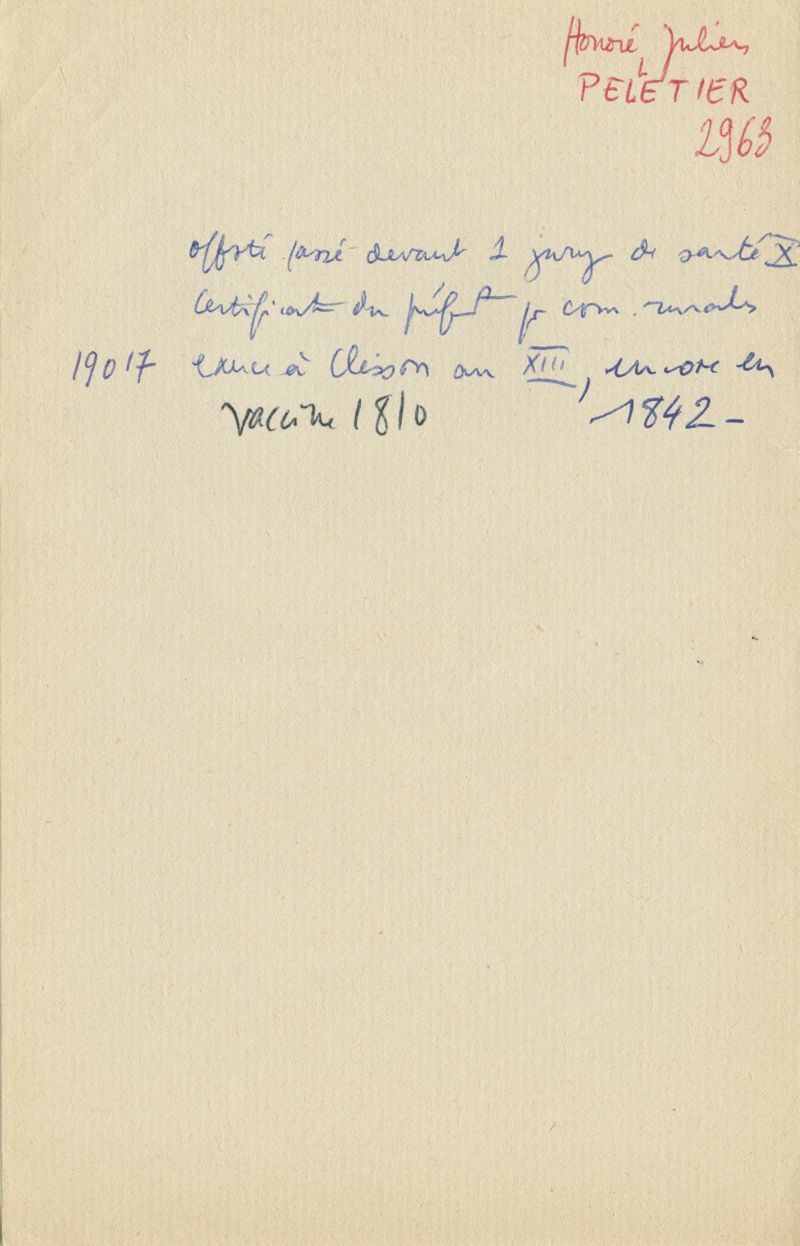 Honoré, Julien
PELETIER
2963
off. sté passé devant 1 jury de santé X
Certificat du préf. pr com. rurales
19017 exerce à Clisson an XIII, encore en
vaccine 1810 1842 -